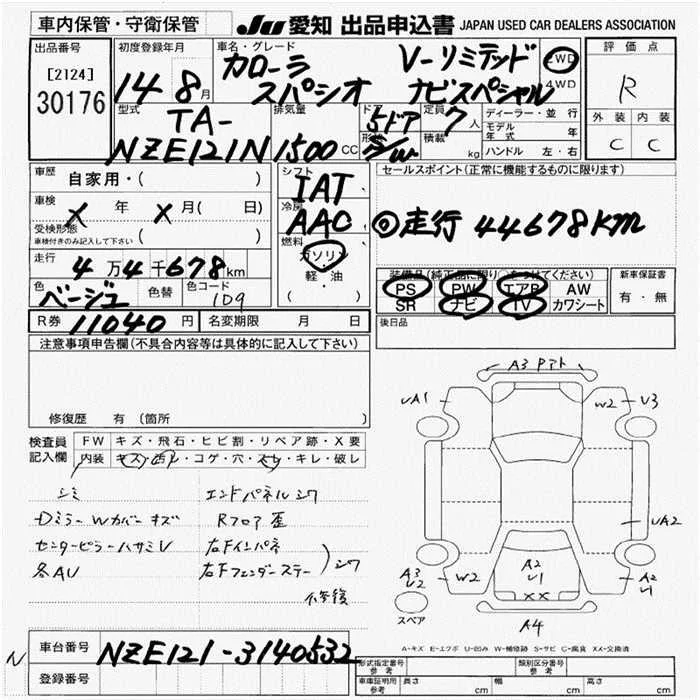 車内保管・守衛保管
JU 愛知 出品申込書 JAPAN USED CAR DEALERS ASSOCIATION
出品番号
[2124]
30176
初度登録年月
14 8月
車名・グレード
カローラ V-リミテッド
スパシオ ナビスペシャル
2WD
4WD
評価点
R
外装 内装
C C
型式
TA-
NZE121N
排気量
1500cc
ドア
形状
5ドア
S/W
定員 7人
積載 kg
ディーラー・並行
モデル年式 年
ハンドル 左・右
車歴 自家用・( )
車検 X 年 X 月( 日)
受検形態
車検付きのみ記入して下さい ( )
走行 4万4千678km
色 ベージュ 色替 色コード 1D9
シフト IAT
冷房 AAC
燃料
ガソリン
・
軽・油
( )
セールスポイント(正常に機能するものに限ります)
◎走行 44678km
装備品(純正品に限り○をつけてください)
PS PW エアB AW
SR ナビ TV カワシート
新車保証書
有・無
R券 11040円 名変期限 月 日
後日品
注意事項申告欄(不具合内容等は具体的に記入して下さい)
修復歴 有(箇所 )
検査員
記入欄
FW キズ・飛石・ヒビ割・リペア跡・X要
内装 キズ・汚レ・コゲ・穴・スレ・キレ・破レ
シミ
Dミラー Wカバー キズ
センターピラーハサミU
各AU
エンドパネルシワ
Rフロア歪
右Fインパネ
右Fフェンダーステー
シワ
修後
A3 Pアト
UA1
W2
U3
UA2
A3
U2
W2
A2
U1
XX
A2
U1
A4
スペア
A-キズ E-エクボ U-凹み W-補修跡 S-サビ C-腐食 XX-交換済
N
車台番号 NZE121-3140532
登録番号
形式指定番号
参考
類別区分番号
参考
車庫証明用
参考
長さ cm 幅 cm 高さ cm